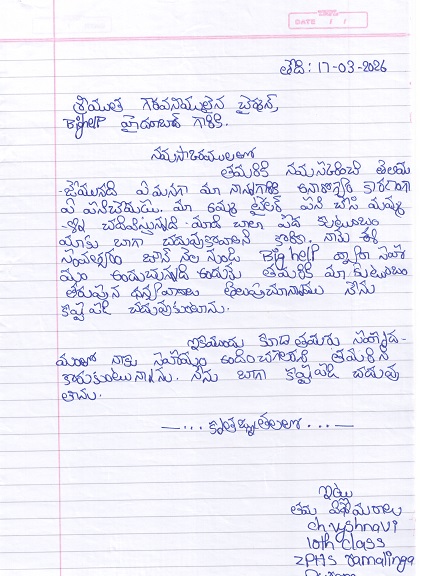 DATE
తేది: 17-03-2026
శ్రీయుత గౌరవనీయులైన చైర్మన్,
Bighelp హైదరాబాద్ గారికి.
నమస్కారములతో
తమరికి నమస్కరించి తెలియ
-జేయునది ఏమనగా మా నాన్నగారు అనారోగ్య కారణంగా
ఏ పనిచేయడు. మా అమ్మ టైలర్ పని చేసి మమ్మ
-ల్ని చదివిస్తున్నది. మాది చాలా పేద కుటుంబం
నాకు బాగా చదువుకోవాలని కోరిక. నాకు ఈ
సంవత్సరం జూన్ నెల నుండి Big help ద్వారా సహా
యం అందుచున్నది అందుకు తమరికి మా కుటుంబం
తరుపున ధన్యవాదాలు తెలుపుచున్నాము నేను
కష్టపడి చదువుకుంటాను.
ఇకముందు కూడా తమరు సంపూర్ణ-
ముతో నాకు సహాయం అందించగలరని తమరిని
కోరుకుంటున్నాను. నేను బాగా కష్టపడి చదువు
తాను.
—... కృతజ్ఞతలతో ...—
ఇట్లు
తమ విధేయురాలు
ch. vyshnavi
10th class
ZPHS ramalinga